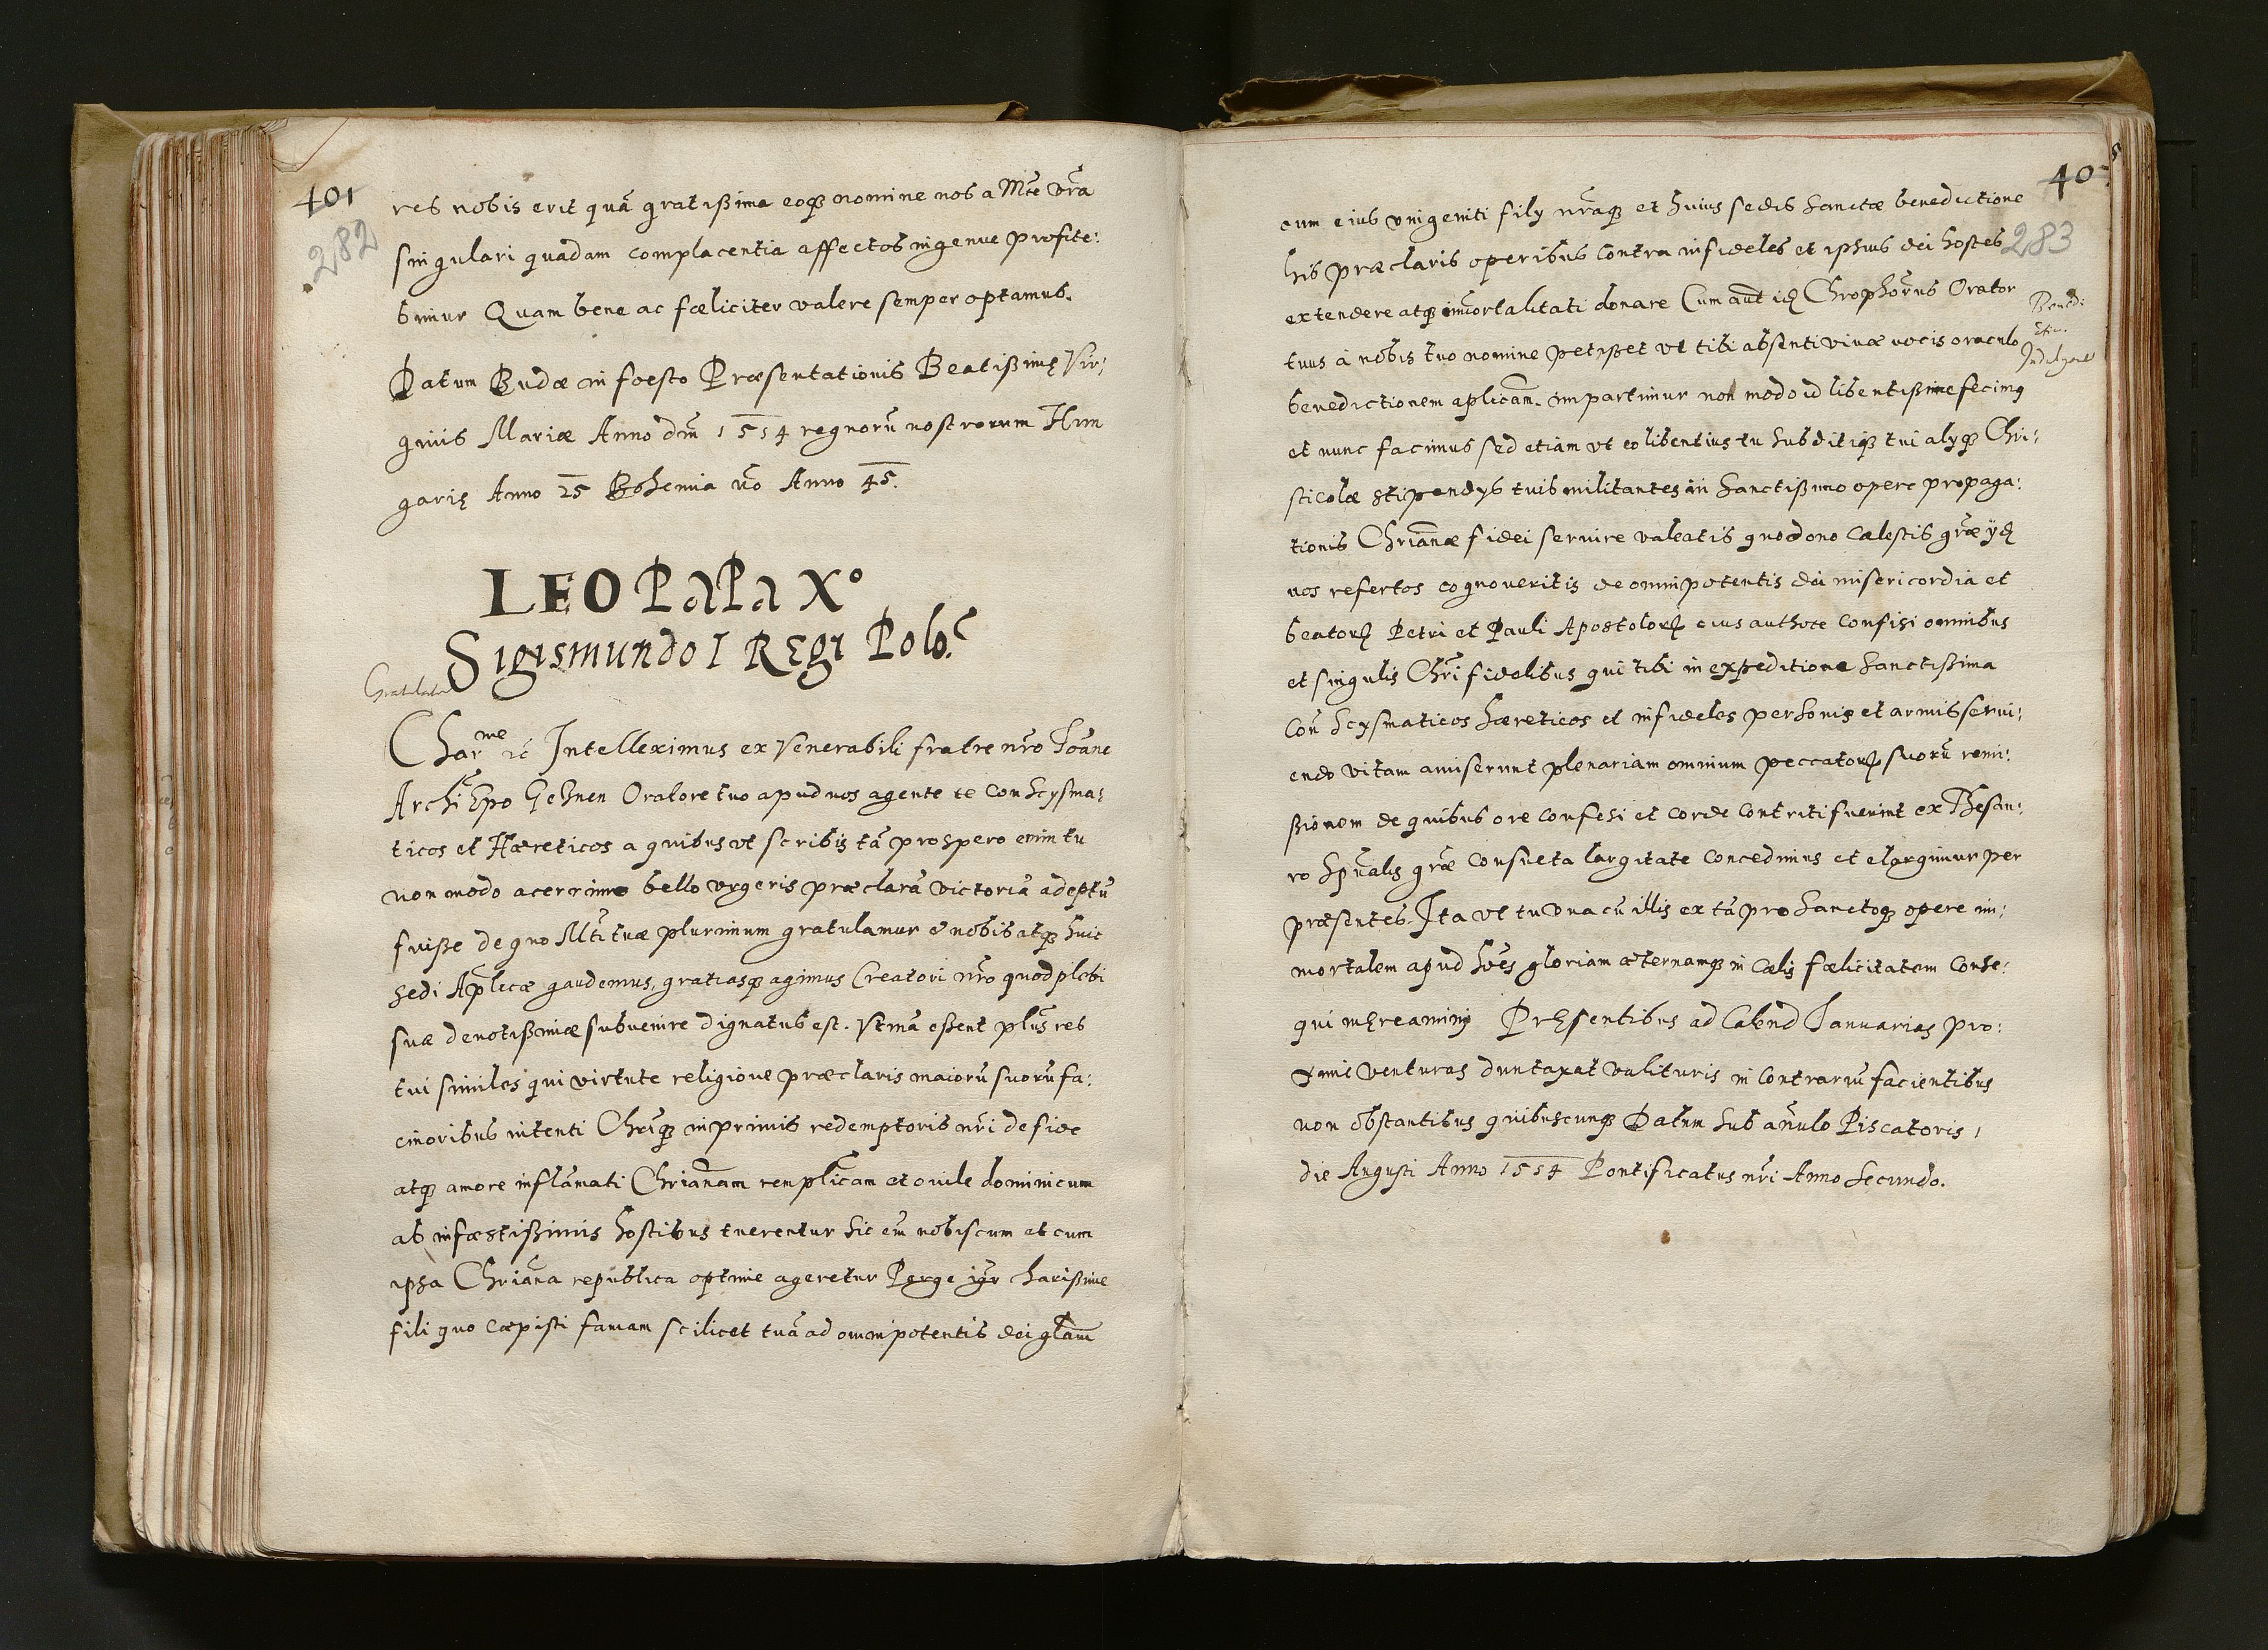 401
282
res nobis erit quā gratißima eoq₃ nomine nos a Mt̄e vr̄a
singulari quadam complacentia affectos ingenue profite:
bimur Quam bene ac fœliciter valere semper optamus.
Datum Budæ in foesto Præsentationis Beatißimę Vir:
ginis Mariæ Anno dn̄i 1514 regnorū nostrorum Hun
garię Anno 25 Bohemia vō Anno 45.
LEO PaPa X°
Sigismundo I REgi Polo.
Gratulatur
Charme ꝛc̄ Intelleximus ex Venerabili fratre nr̄o Ioāne
Archi Ep̄o Gehnen Oratore tuo apud nos agente te con Scysma:
ticos et Hæreticos a quibus ut scribis tā prospero enim tu
non modo acerrimo bello urgeris præclarā victoriā adeptū
fuiße de quo Mt̄i tuæ plurimum gratulamur & nobis atq₃ huic
Sedi Ap̄licæ gaudemus, gratiasq₃ agimus Creatori nr̄o quod plebi
suæ deuotißimæ subuenire dignatus est. Vtinā eßent plūs res
tui similes qui virtute religione præclaris maiorū suorū fa:
cinoribus intenti Chr̄iq₃ inprimis redemptoris nr̄i de fide
atq₃ amore inflāmati Chriānam rempl̄icam et ouile dominicum
ab infæstißimis hostibus tuerentur sic em̄ nobiscum et cum
ipsa Chriāna republica optime ageretur Perge igr̄ charißime
fili quo cæpisti famam scilicet tuā ad omnipotentis dei gl̄am
405
283
cum eius vnigeniti filÿ nr̄aq₃ et huius sedis sanctæ benedictione
his præclaris operibus contra infideles et ipsius dei hostes
extendere atq₃ im̄ortalitati donare Cum aut̄ idē Chrophōrus Orator
tuus à nobis tuo nomine petißet vt tibi absenti viuæ vocis oraculo
Benedi:
ctio.
Indulgent
benedictionem ap̄licam. impartimur non modo id libentißime fecimꝰ
et nunc facimus sed etiam vt eo libentius tu subditiq₃ tui alÿq₃ Chri:
sticolæ stipendÿs tuis militantes in sanctißimo opere propaga:
tionis Chriānæ fidei seruire valeatis quo dono cælestis gr̄æ ÿdē
uos refertos cognoveritis de omnipotentis dei misericordia et
beatorꝝ Petri et Pauli Apostolorꝝ eius authote confisi omnibus
et singulis Chr̄i fidelibus qui tibi in expeditione sanctißima
con̄ scysmaticos hæreticos et infideles personis et armis serui:
endo vitam amiserunt plenariam omnium peccatorꝝ suorū remi:
ßionem de quibus ore confesi et corde contriti fuerint ex Thesau:
ro sp̄ualis gr̄æ consueta largitate concedimus et elargimur per
præsentes. Ita vt tu vna cū illis ex tā pro sanctoq₃ opere im:
mortalem apud hōes gloriam æternamq₃ in cælis fælicitatem conse:
qui mEreamini PrEsentibus ad Calend Ianuarias pro:
xime venturas duntaxat valituris in contrariū facientibus
non obstantibus quibuscunq₃ Datum sub an̄ulo Piscatoris 1
die Augusti Anno 1514 Pontificatus nr̄i Anno Secundo.